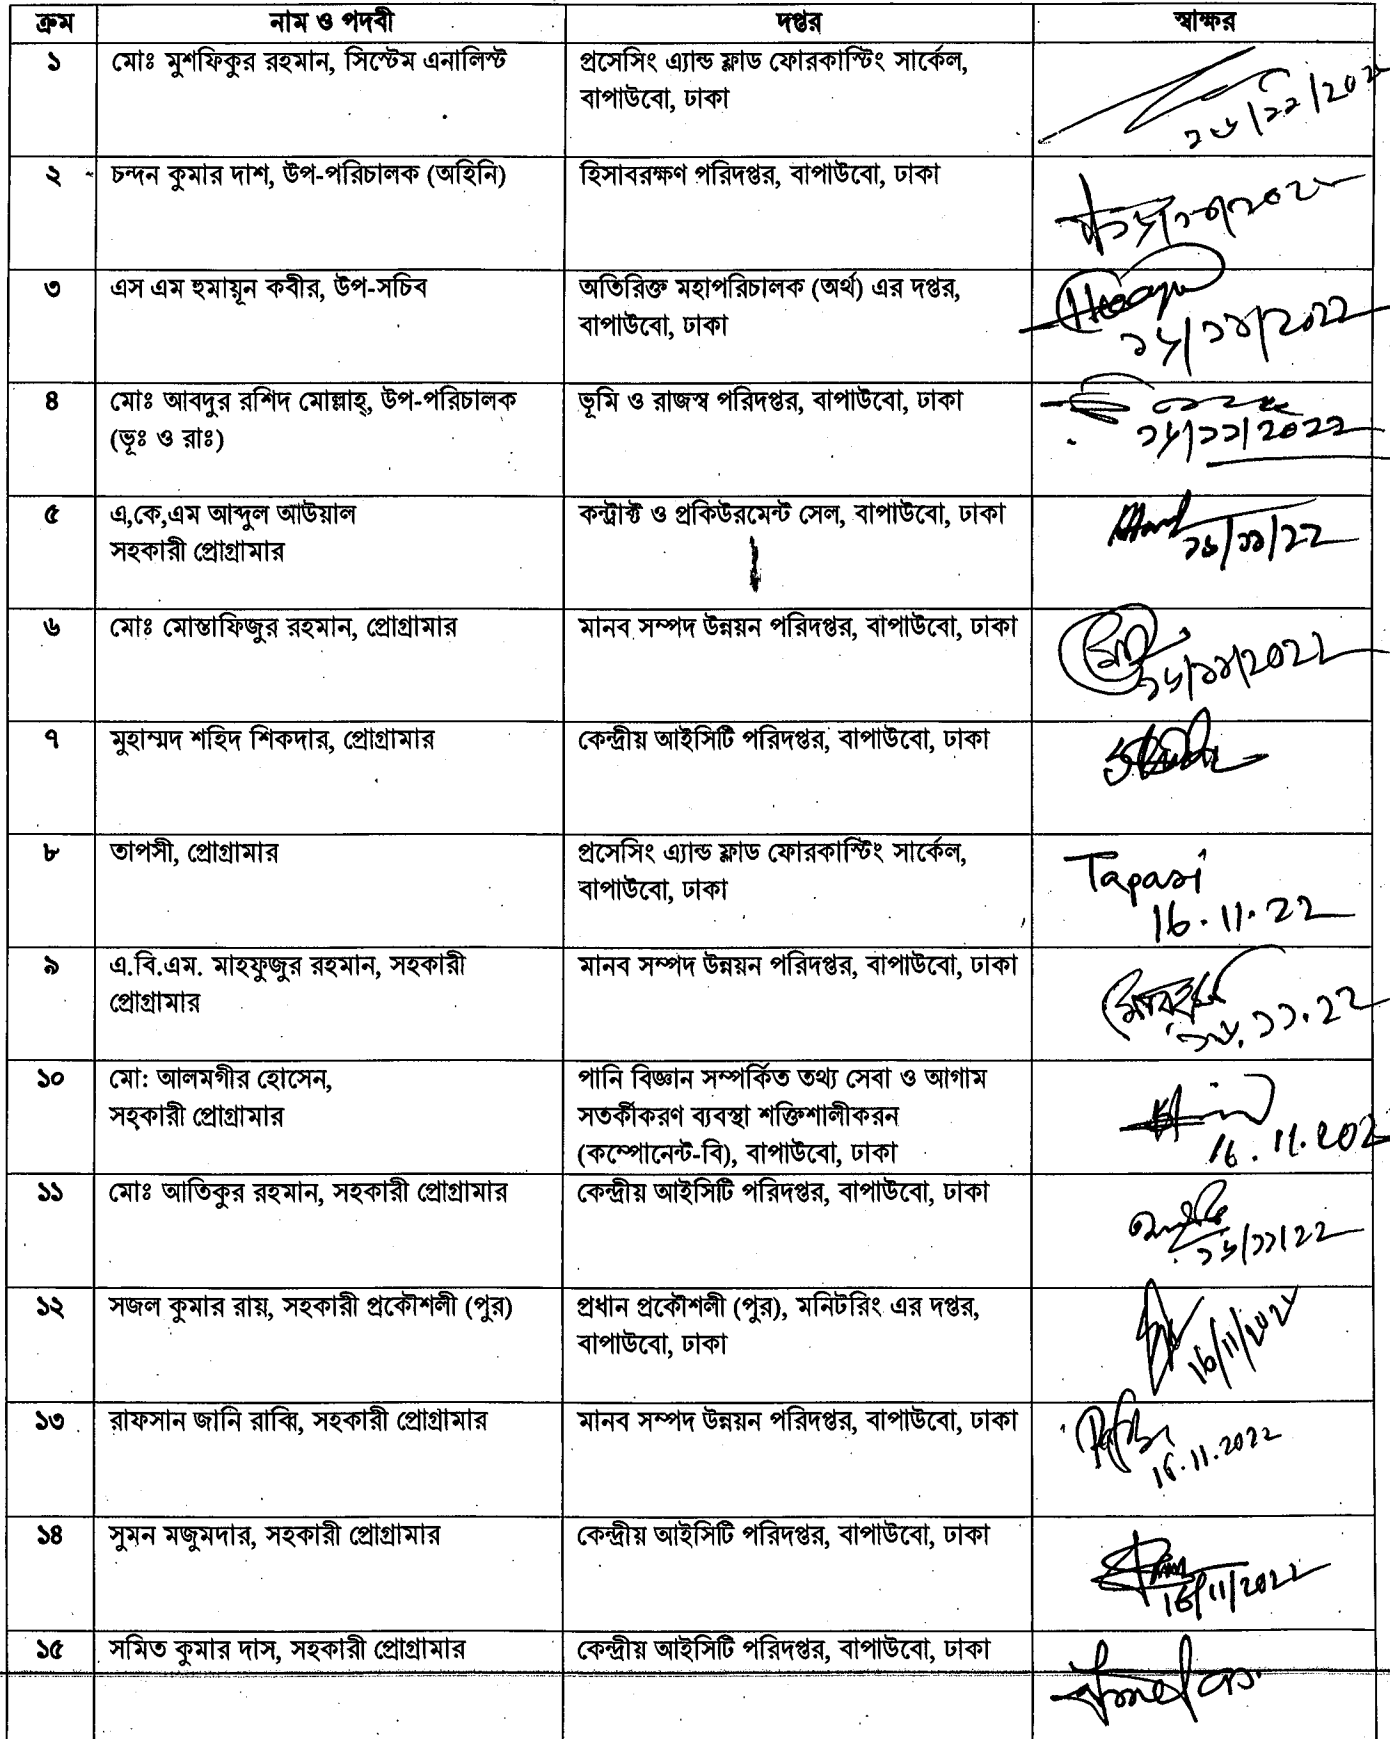 ক্রম নাম ও পদবী দপ্তর স্বাক্ষর
১ মোঃ মুশফিকুর রহমান, সিস্টেম এনালিস্ট প্রসেসিং এ্যান্ড ফ্লাড ফোরকাস্টিং সার্কেল,
বাপাউবো, ঢাকা
২ চন্দন কুমার দাশ, উপ-পরিচালক (অহিনি) হিসাবরক্ষণ পরিদপ্তর, বাপাউবো, ঢাকা
৩ এস এম হুমায়ূন কবীর, উপ-সচিব অতিরিক্ত মহাপরিচালক (অর্থ) এর দপ্তর,
বাপাউবো, ঢাকা
১৬/১১/2022
৪ মোঃ আবদুর রশিদ মোল্লাহ্, উপ-পরিচালক ভূমি ও রাজস্ব পরিদপ্তর, বাপাউবো, ঢাকা
(ভূঃ ও রাঃ) ১৬/১১/2022
৫ এ,কে,এম আব্দুল আউয়াল কন্ট্রাক্ট ও প্রকিউরমেন্ট সেল, বাপাউবো, ঢাকা
সহকারী প্রোগ্রামার ১৬/১১/22
৬ মোঃ মোস্তাফিজুর রহমান, প্রোগ্রামার মানব সম্পদ উন্নয়ন পরিদপ্তর, বাপাউবো, ঢাকা
১৬/১১/2022
৭ মুহাম্মদ শহিদ শিকদার, প্রোগ্রামার কেন্দ্রীয় আইসিটি পরিদপ্তর, বাপাউবো, ঢাকা
৮ তাপসী, প্রোগ্রামার প্রসেসিং এ্যান্ড ফ্লাড ফোরকাস্টিং সার্কেল, Tapasi
বাপাউবো, ঢাকা 16.11.22
৯ এ.বি.এম. মাহফুজুর রহমান, সহকারী মানব সম্পদ উন্নয়ন পরিদপ্তর, বাপাউবো, ঢাকা
প্রোগ্রামার ১৬.১১.22
১০ মো: আলমগীর হোসেন, পানি বিজ্ঞান সম্পর্কিত তথ্য সেবা ও আগাম
সহকারী প্রোগ্রামার সতর্কীকরণ ব্যবস্থা শক্তিশালীকরন
(কম্পোনেন্ট-বি), বাপাউবো, ঢাকা 16.11.202
১১ মোঃ আতিকুর রহমান, সহকারী প্রোগ্রামার কেন্দ্রীয় আইসিটি পরিদপ্তর, বাপাউবো, ঢাকা
১৬/১১/22
১২ সজল কুমার রায়, সহকারী প্রকৌশলী (পুর) প্রধান প্রকৌশলী (পুর), মনিটরিং এর দপ্তর,
বাপাউবো, ঢাকা 16/11/2022
১৩ রাফসান জানি রাব্বি, সহকারী প্রোগ্রামার মানব সম্পদ উন্নয়ন পরিদপ্তর, বাপাউবো, ঢাকা
16.11.2022
১৪ সুমন মজুমদার, সহকারী প্রোগ্রামার কেন্দ্রীয় আইসিটি পরিদপ্তর, বাপাউবো, ঢাকা
16/11/2022
১৫ সমিত কুমার দাস, সহকারী প্রোগ্রামার কেন্দ্রীয় আইসিটি পরিদপ্তর, বাপাউবো, ঢাকা